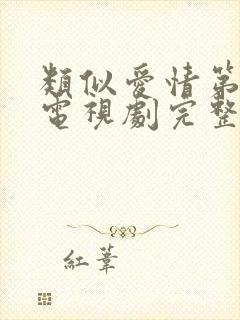 類似愛情第
電視劇完整
紅葦